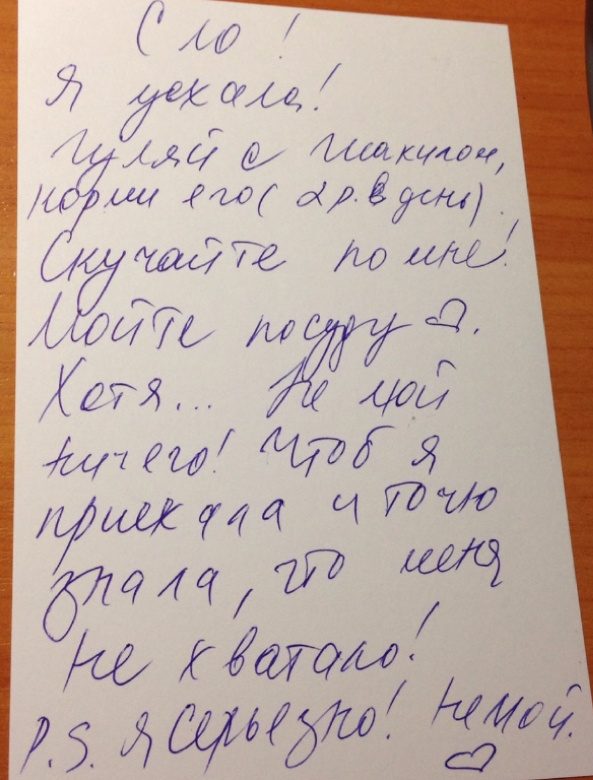 Сло!
Я уехала!
Гуляй с Шакилом,
корми его (2 р. в день).
Скучайте по мне!
Мойте посуду ♡.
Хотя... Не мой
ничего! Чтоб я
приехала и точно
знала, что меня
не хватало!
P.S. Я серьезно! Не мой.
♡